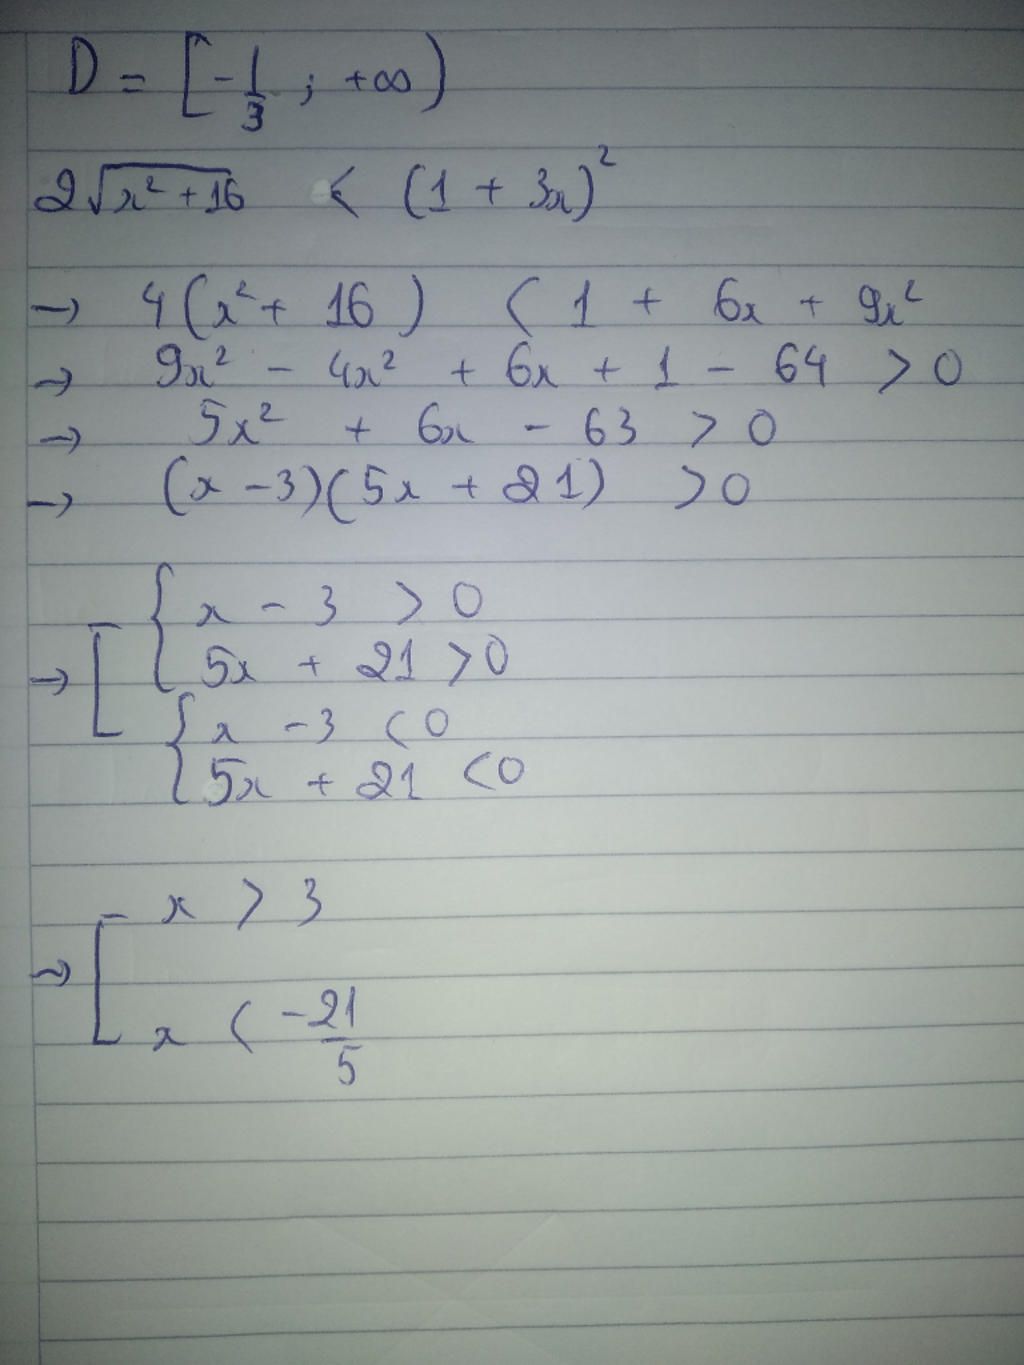 D = [-1/3 ; +∞)
2√(x² + 16) < (1 + 3x)²
→ 4(x² + 16) < 1 + 6x + 9x²
→ 9x² - 4x² + 6x + 1 - 64 > 0
→ 5x² + 6x - 63 > 0
→ (x - 3)(5x + 21) > 0
→ [ { x - 3 > 0
5x + 21 > 0
{ x - 3 < 0
5x + 21 < 0
→ [ x > 3
x < -21/5